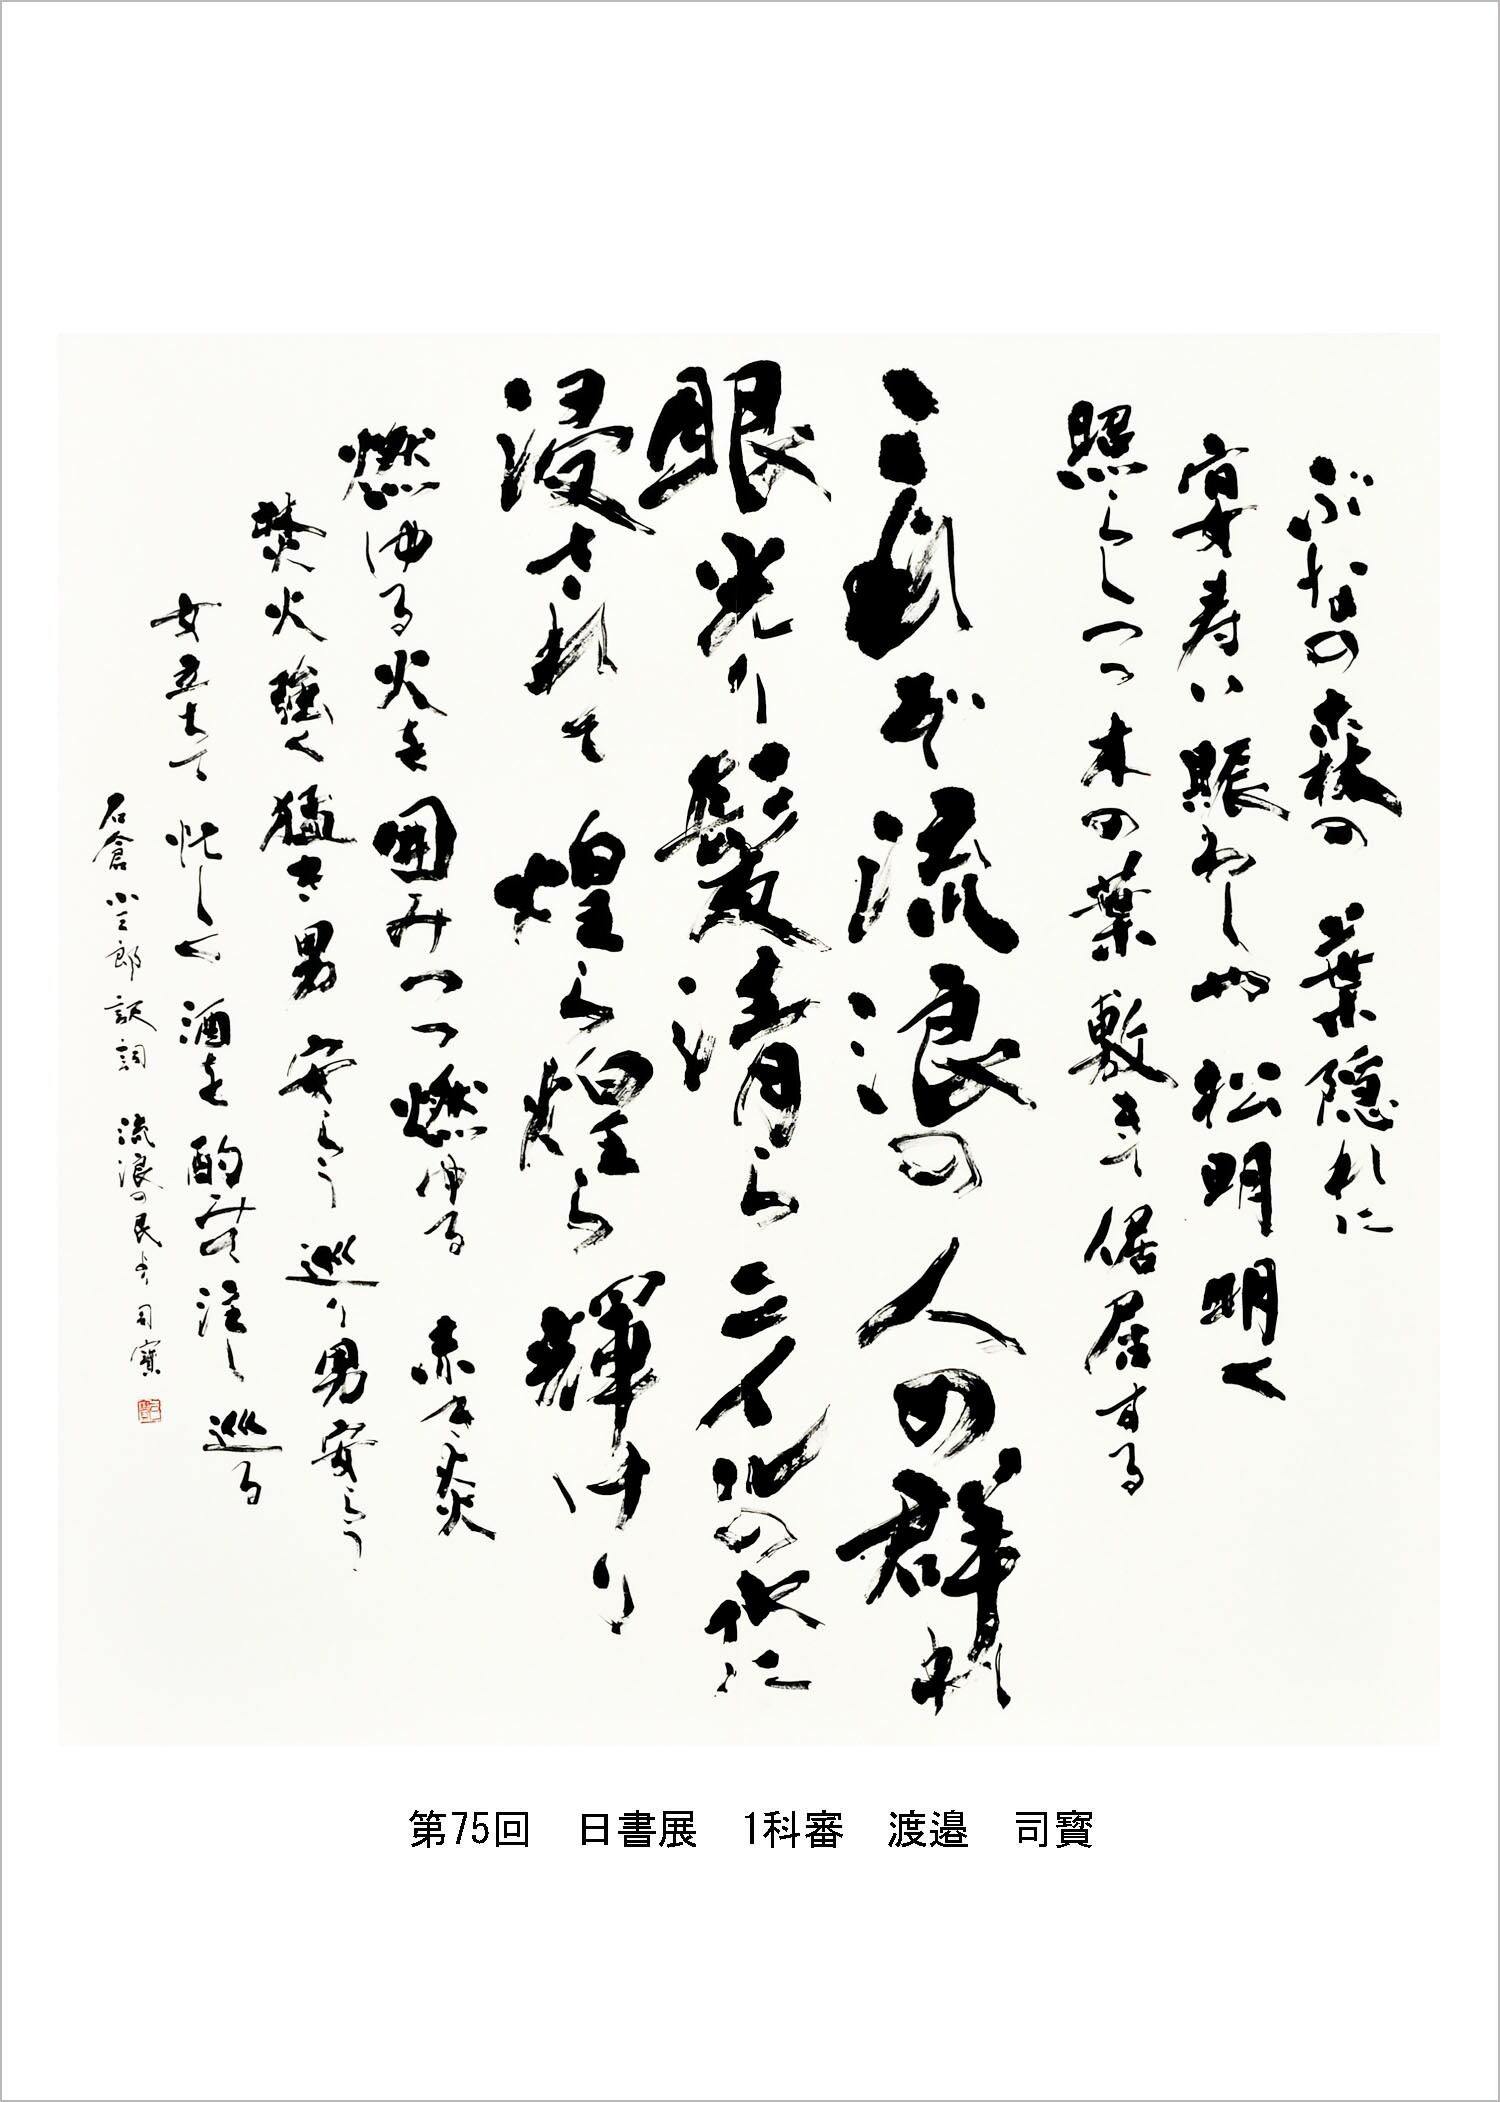 ぶなの森の葉隠れに
宴寿い賑わしや松明明く
照らしつつ木の葉敷きて倨居する
これぞ流浪の人の群れ
眼光り髪清らニイルの水に
浸されて煌ら煌ら輝けり
燃ゆる火を囲みつつ燃ゆる赤々炎
焚火強く猛き男安らう巡り男安らう
女立ちて忙しく酒を酌みて注し巡る
石倉小三郎訳詞 流浪の民より 司寳
第75回 日書展 1科審 渡邉 司寳